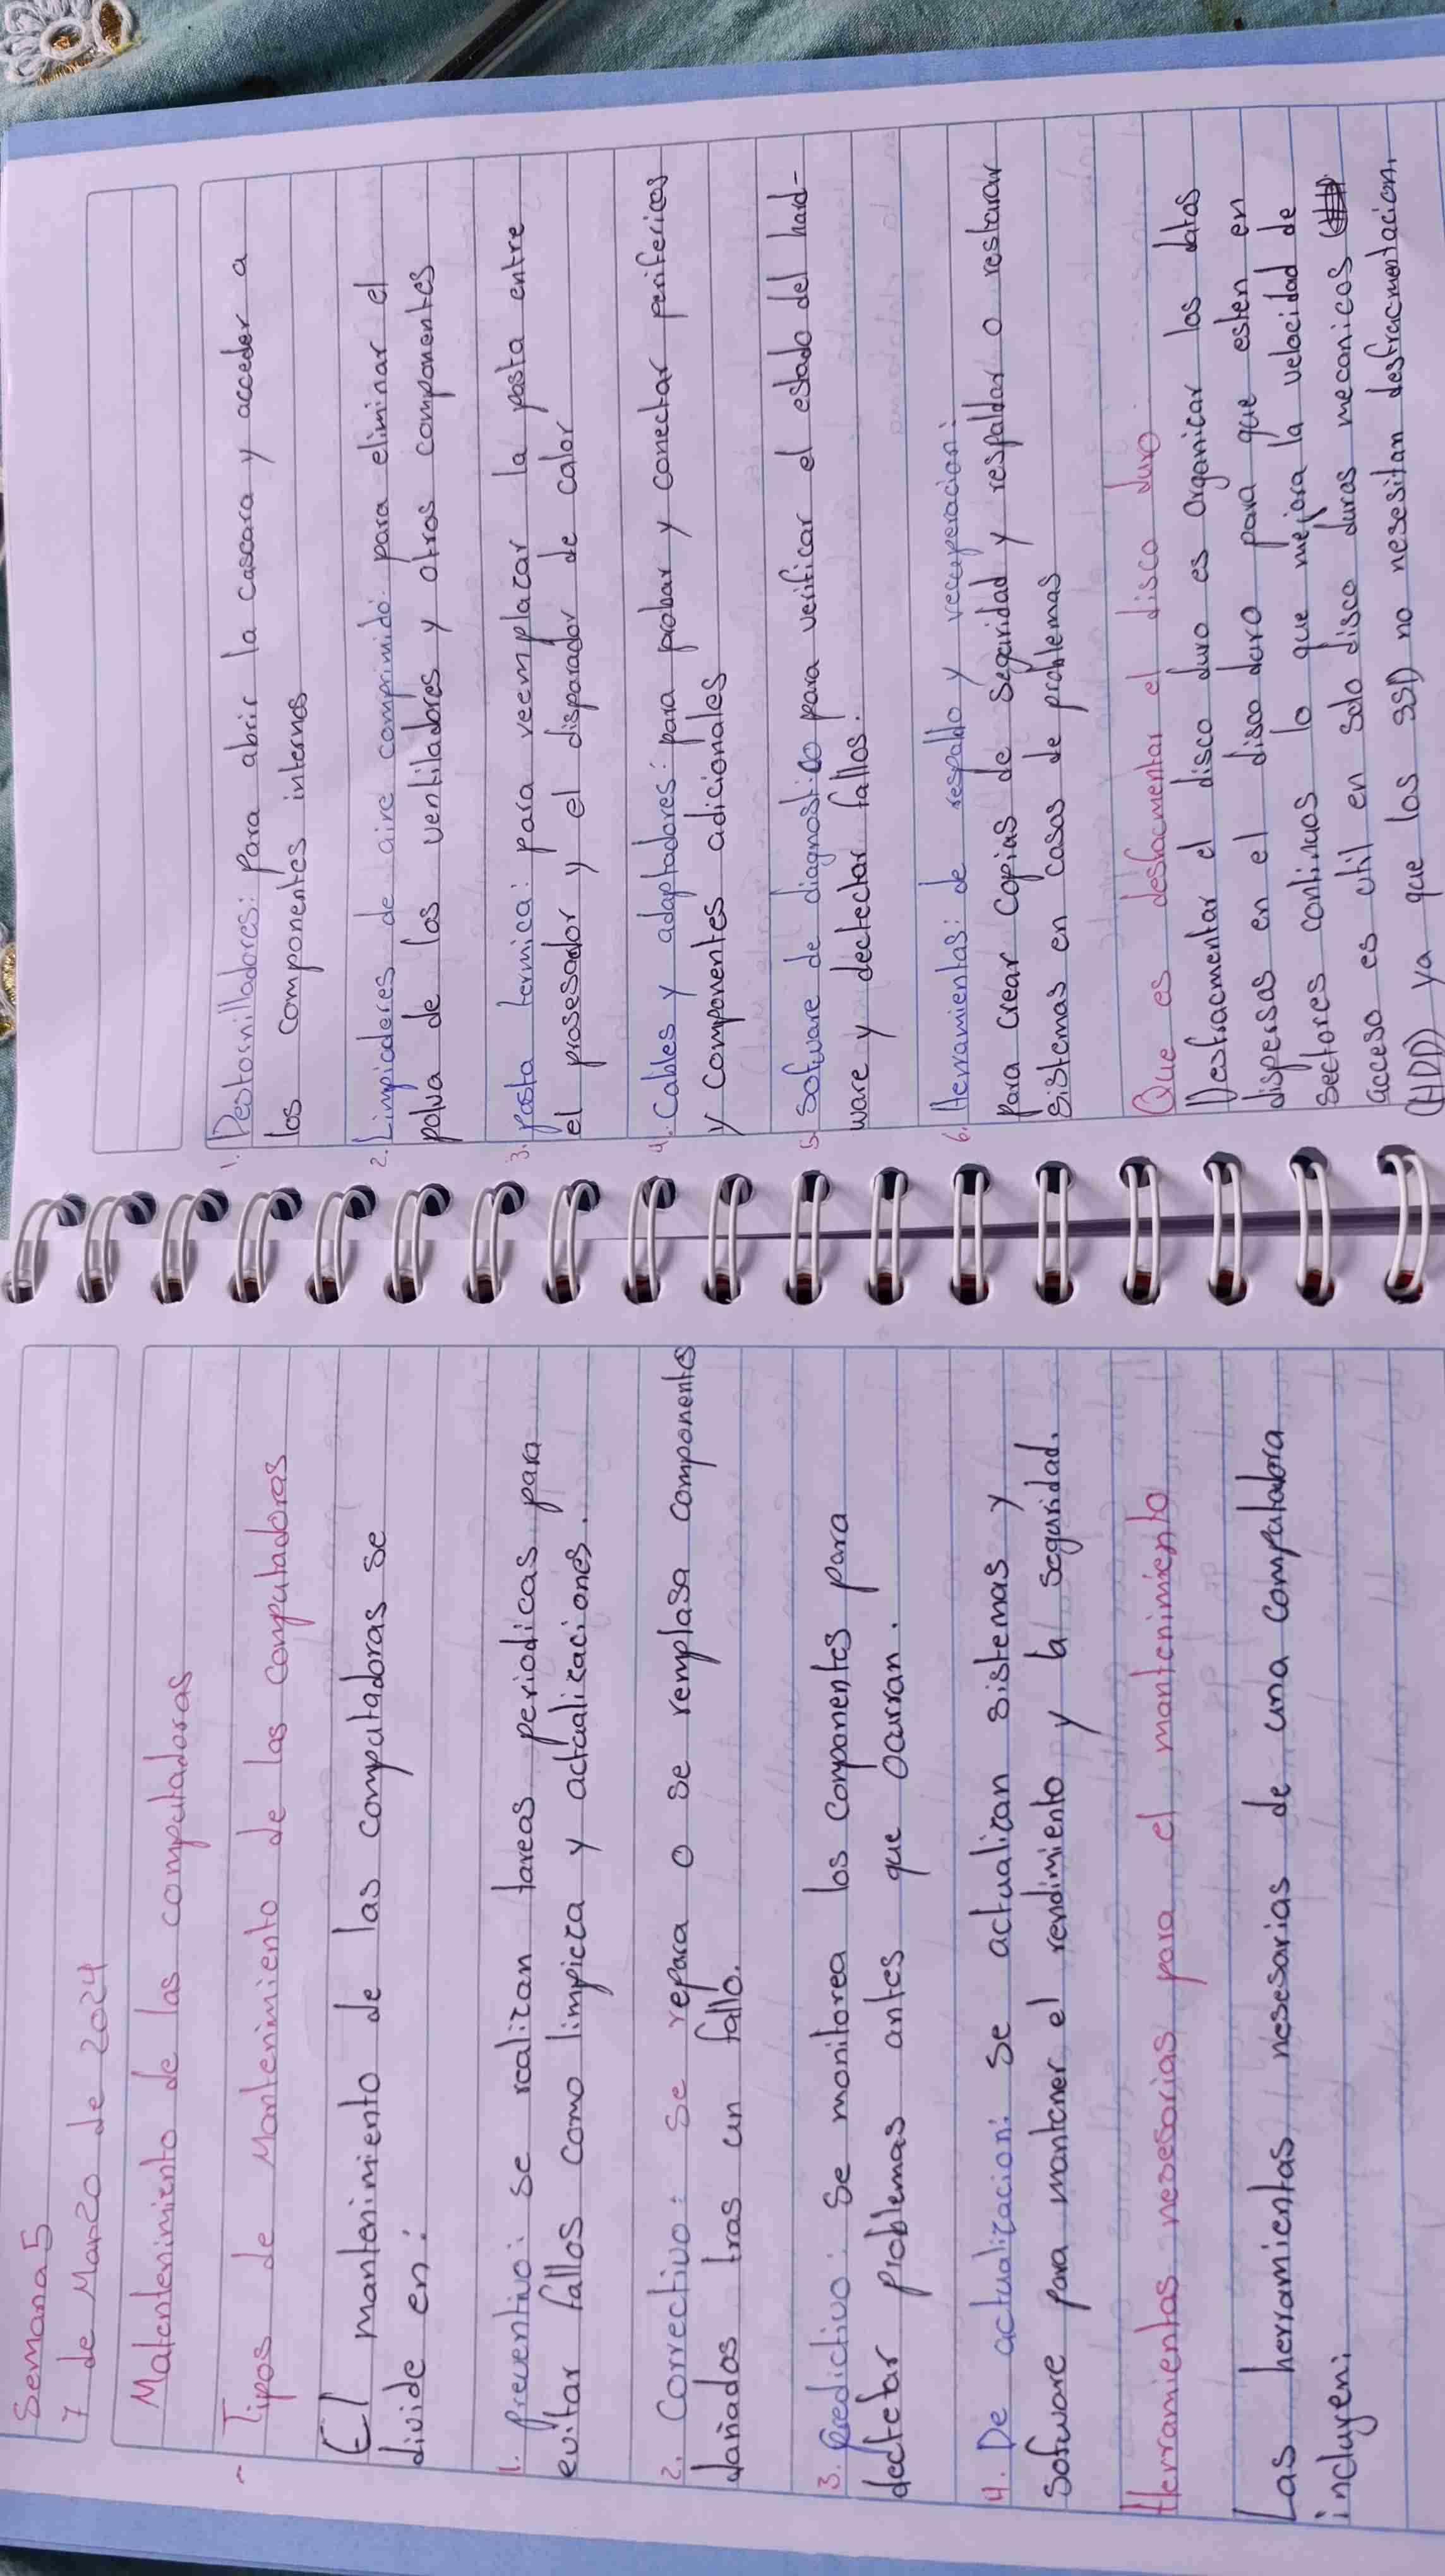 Semana 5
7 de Marzo de 2024
Matantenimiento de las computadoras
Tipos de Mantenimiento de las computadoras
El mantenimiento de las computadoras se
divide en:
1. preventivo: se realizan tareas periodicas para
evitar fallos como limpieza y actualizaciones.
2. Correctivo: Se repara o se remplasa componentes
dañados tras un fallo.
3. predictivo: Se monitorea los componentes para
dectetar problemas antes que ocurran.
4. De actualizacion: Se actualizan sistemas y
Sofware para mantener el rendimiento y la seguridad.
Herramientas nesesarias para el mantenimiento
Las herramientas nesesarias de una computadora
incluyen:
1. Destosnilladores: Para abrir la cascara y acceder a
los componentes internos
2. Limpiadores de aire comprimido: para eliminar el
polva de los ventiladores y otros componentes
3. pasta termica: para reemplazar la pasta entre
el prosesador y el disparador de calor
4. Cables y adaptadores: para probar y conectar perifericos
y componentes adicionales
5. Sofware de diagnostico para verificar el estado del hard-
ware y dectectar fallos.
6. Herramientas: de respaldo y recuperacion:
Para crear copias de seguridad y respaldar o restarar
sistemas en casos de problemas
Que es desfracmentar el disco duro
Desfracmentar el disco duro es organizar los datos
dispersas en el disco duro para que esten en
sectores continuos lo que mejora la velocidad de
acceso es util en solo disco duros mecanicos
(HDD) ya que los SSD no nesesitan desfracmentacion.